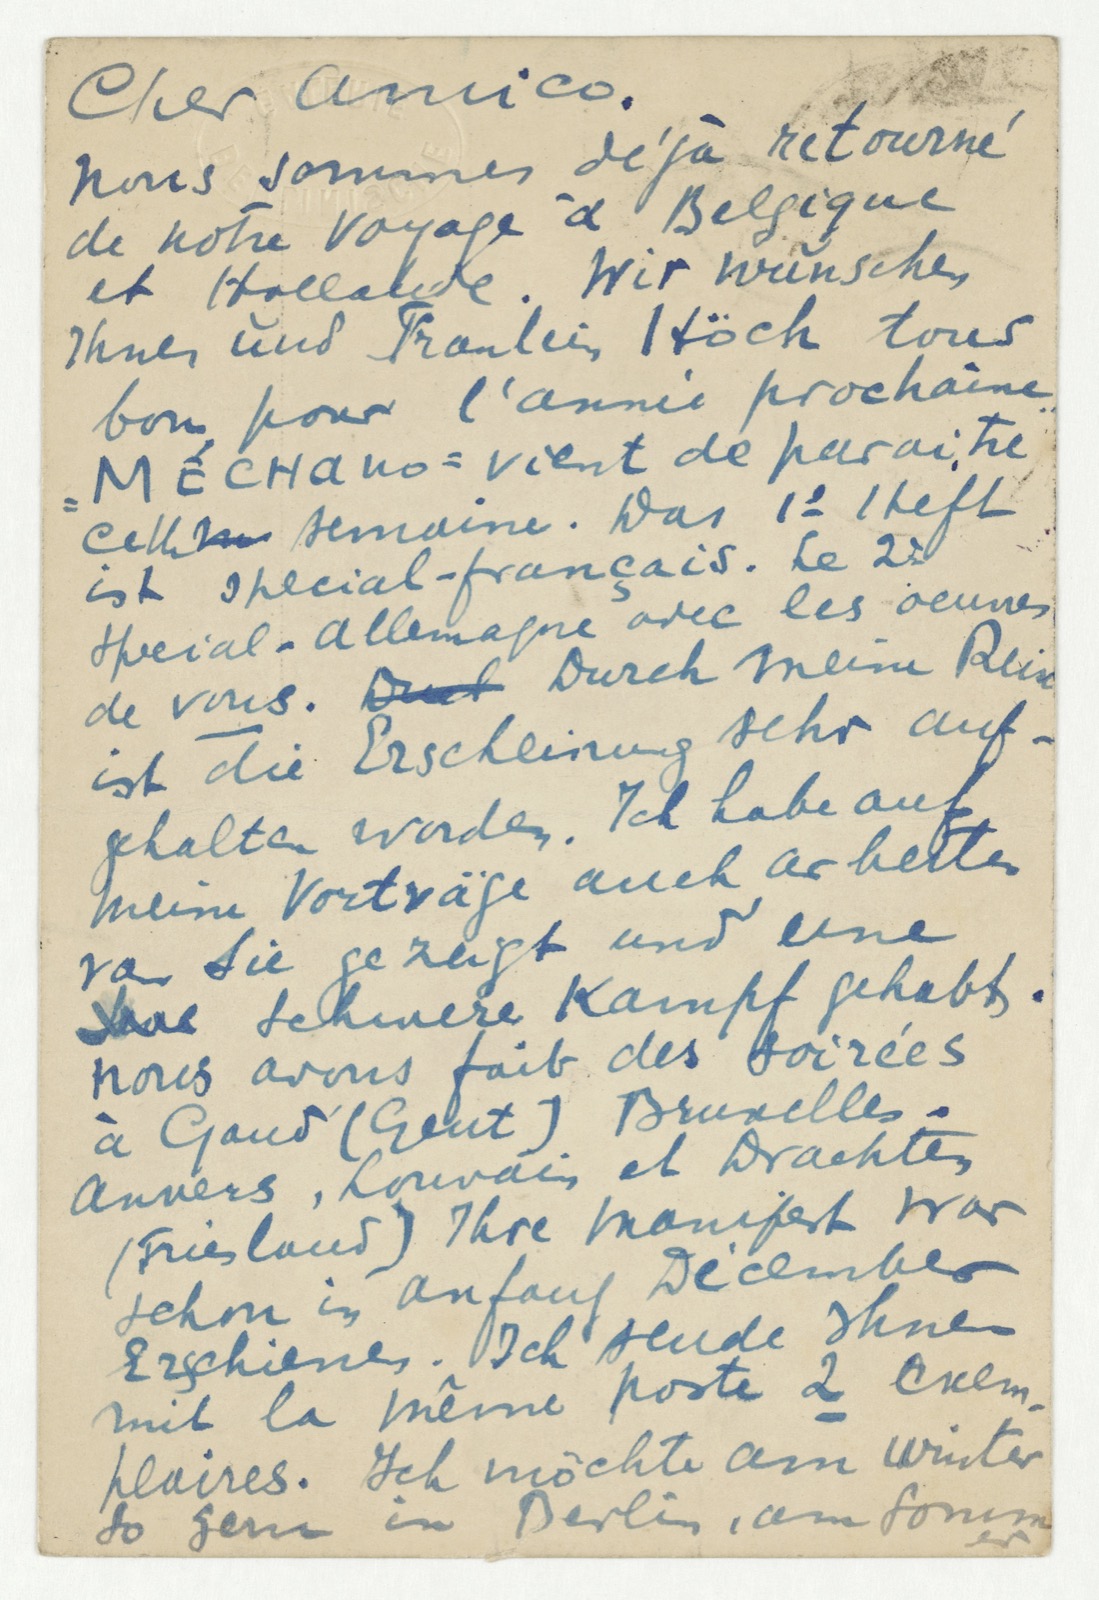 Cher Amico.
nous sommes déjà retourné
de notre voyage à Belgique
et Hollande. Wir wünschen
Ihnen und Fraulein Höch tous
bon pour l'année prochaine.
"MÉCHANO" vient de paraitre
cette semaine. Das 1e Heft
ist special-français. Le 2e
special-allemagne avec les oeuvres
de vous. Durch meine Reise
ist die Erscheinung sehr auf-
gehalten worden. Ich habe auf
meine Vorträge auch arbeiten
von Sie gezeigt und eine
schwere Kampf gehabt.
nous avons fait des soirées
à Gand (Gent) Bruxelles.
Anvers, Louvain et Drachten
(Friesland) Ihre manifest war
schon in anfang Décember
Erschienen. Ich sende Ihnen
mit la même poste 2 exem-
plaires. Ich möchte am winter
so gern in Berlin, am Sommer